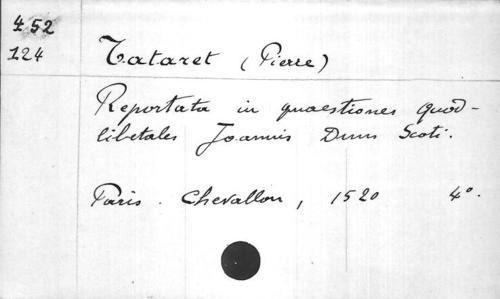 452
124
Tataret (Pierre)
Reportata in quaestiones quod-
libetales Joannis Duns Scoti.
Paris. Chevallon, 1520 4°.